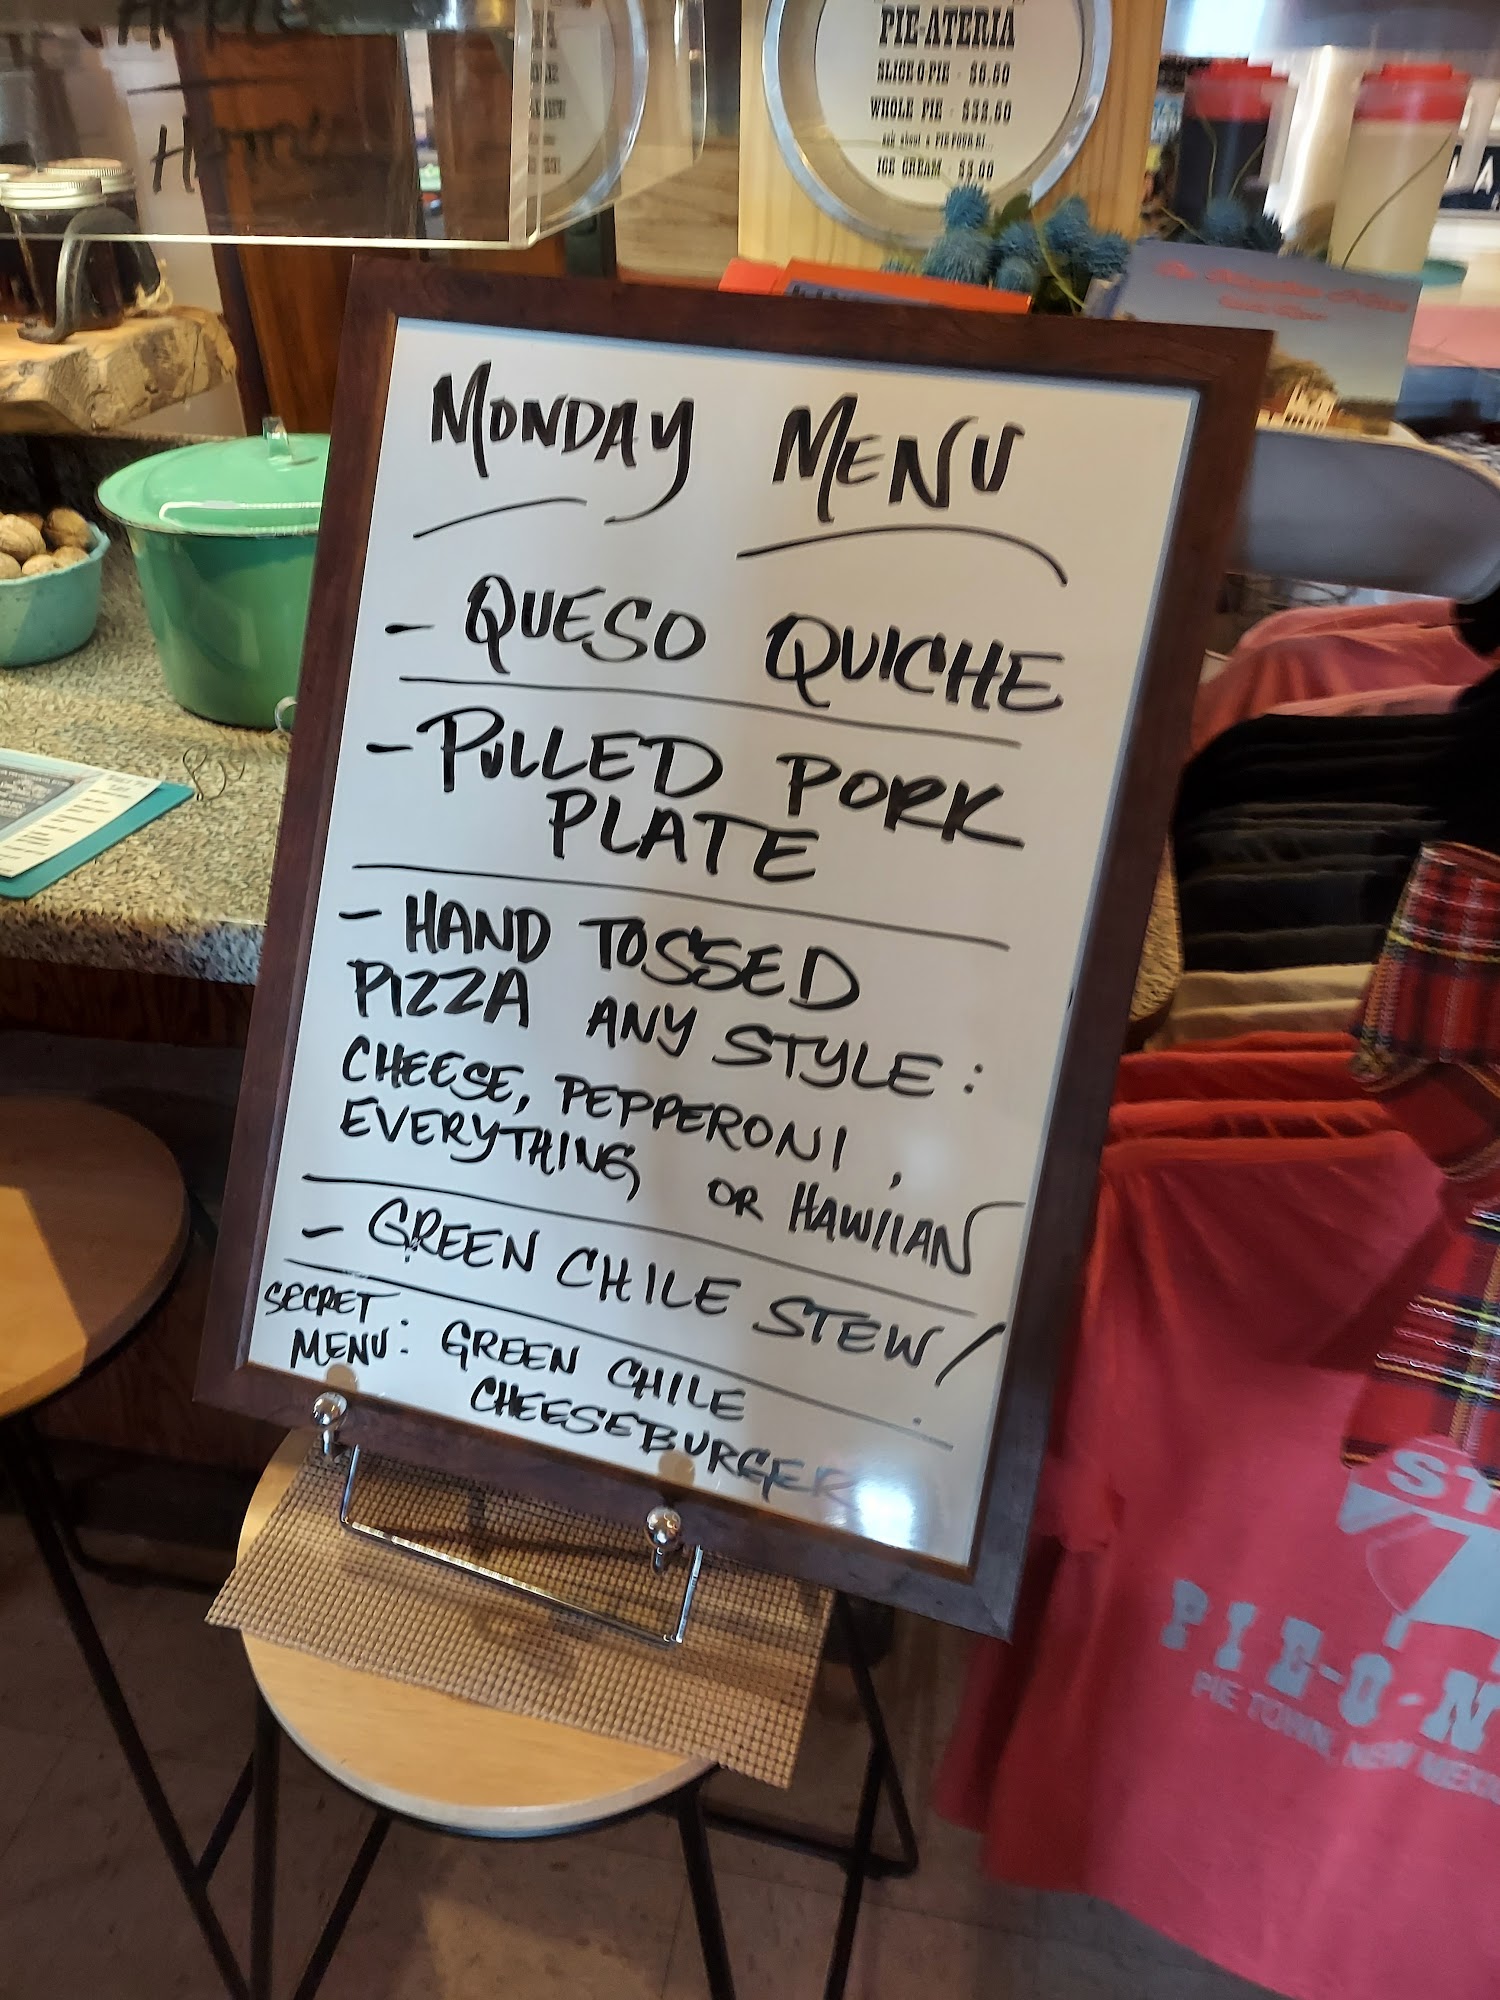 APPLE
PIE-ATERIA
SLICE O PIE - $6.50
WHOLE PIE - $32.50
ask about a PIE FOUR BI...
ICE CREAM - $3.00
MONDAY MENU
- QUESO QUICHE
- PULLED PORK
PLATE
- HAND TOSSED
PIZZA ANY STYLE:
CHEESE, PEPPERONI,
EVERYTHING OR HAWIIAN
- GREEN CHILE STEW/
SECRET
MENU: GREEN CHILE
CHEESEBURGER
ST
PIE-O-N
PIE TOWN, NEW MEXI